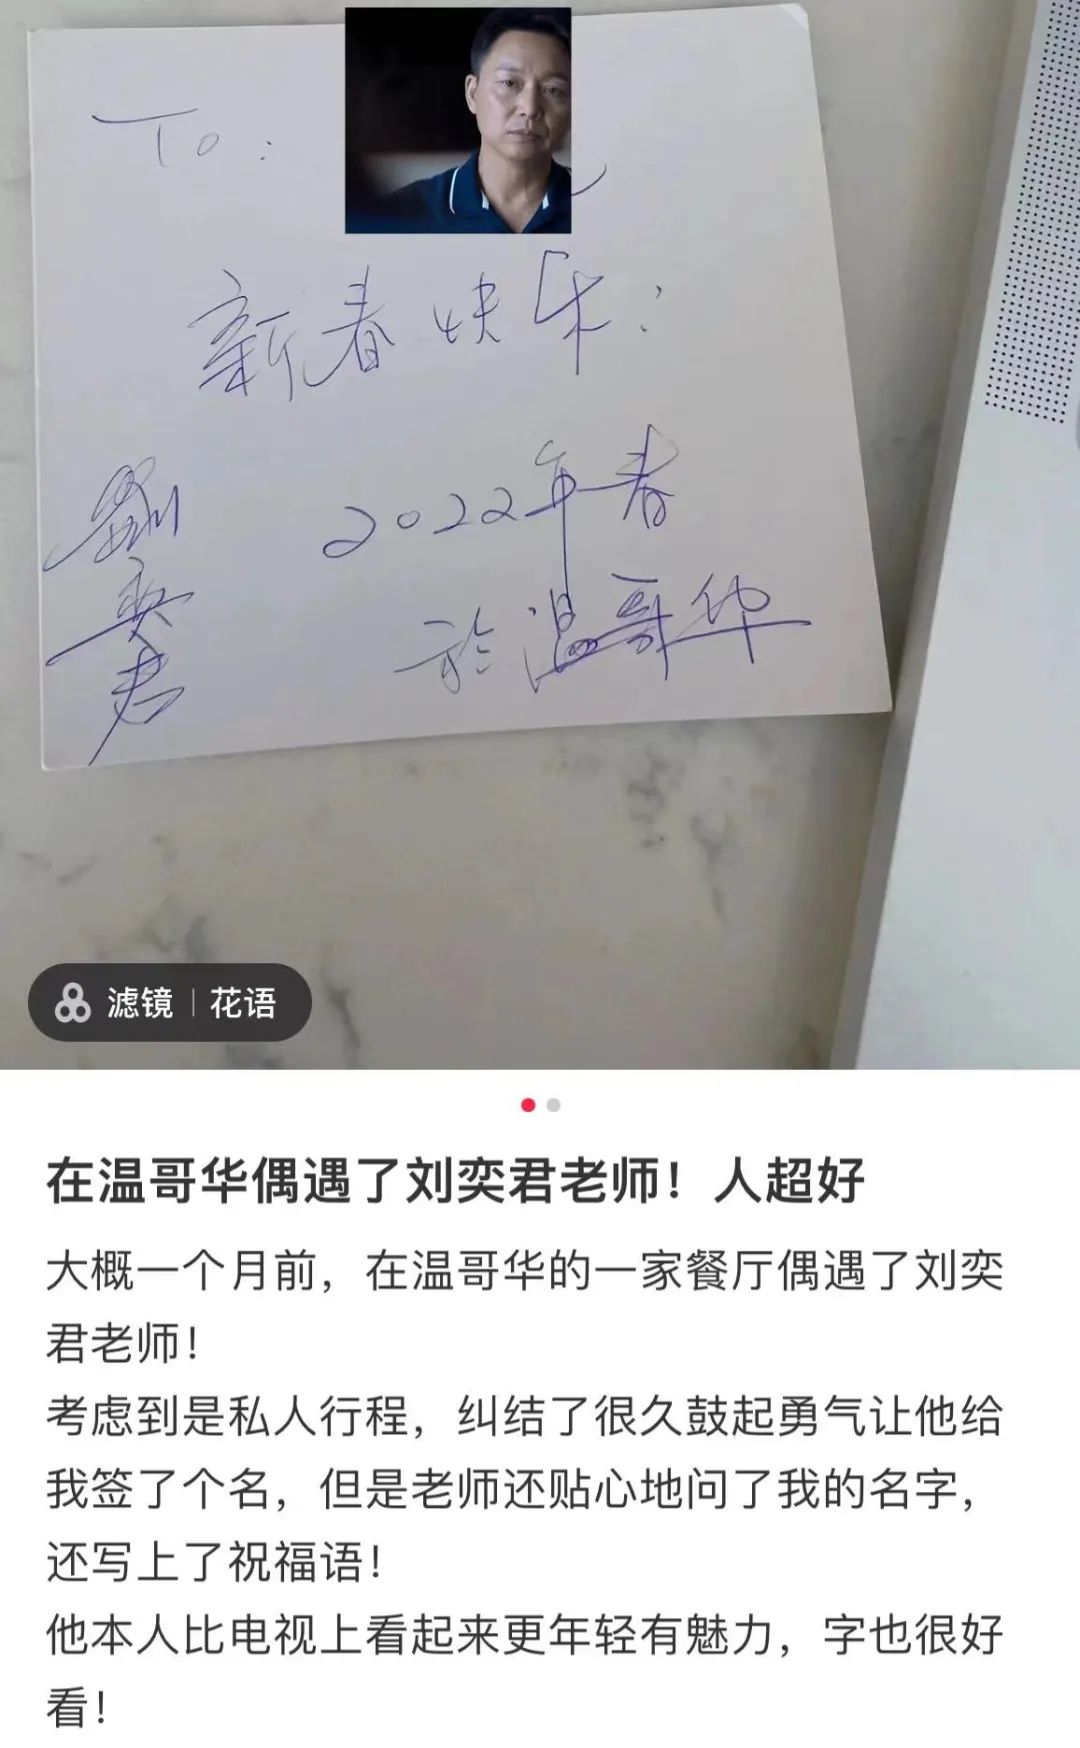 To:
新春快乐:
2022年春
於温哥华
劉奕君
滤镜 | 花语
在温哥华偶遇了刘奕君老师！人超好
大概一个月前，在温哥华的一家餐厅偶遇了刘奕
君老师！
考虑到是私人行程，纠结了很久鼓起勇气让他给
我签了个名，但是老师还贴心地问了我的名字，
还写上了祝福语！
他本人比电视上看起来更年轻有魅力，字也很好
看！